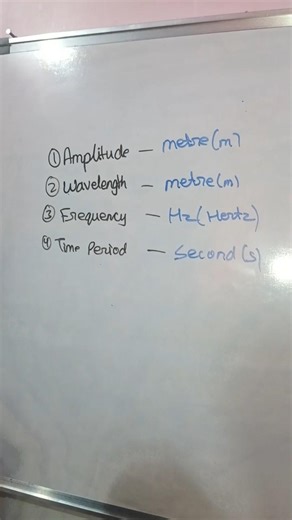 ① Amplitude — metre(m)
② Wavelength — metre(m)
③ Frequency — Hz(Hertz)
④ Time Period — Second(s)